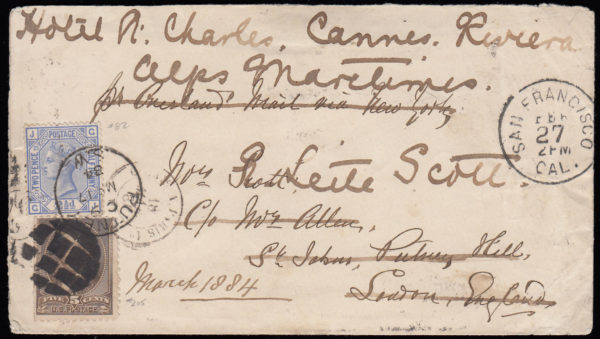 Hotel St. Charles. Cannes. Riviera
Alps Maritimes.
pr Overland Mail via New York
SAN FRANCISCO
FEB
27
2PM
CAL.
#82
POSTAGE
TWO PENCE
J C
Mrs Scott
Leite Scott.
c/o Mrs Allen,
St Johns, Putney Hill,
London, England
March 1884
#205
PUTNEY
MR
84
FIVE 5 CENTS
U.S. POSTAGE